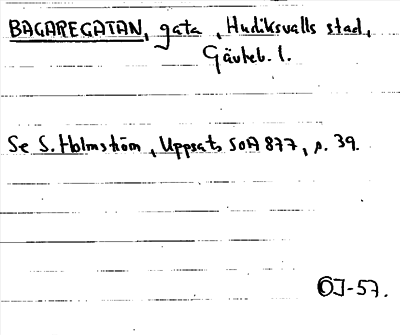 BAGAREGATAN, gata, Hudiksvalls stad,
Gävleb. l.
Se S. Holmström, Uppsats SOA 877, s. 39.
OJ-57.